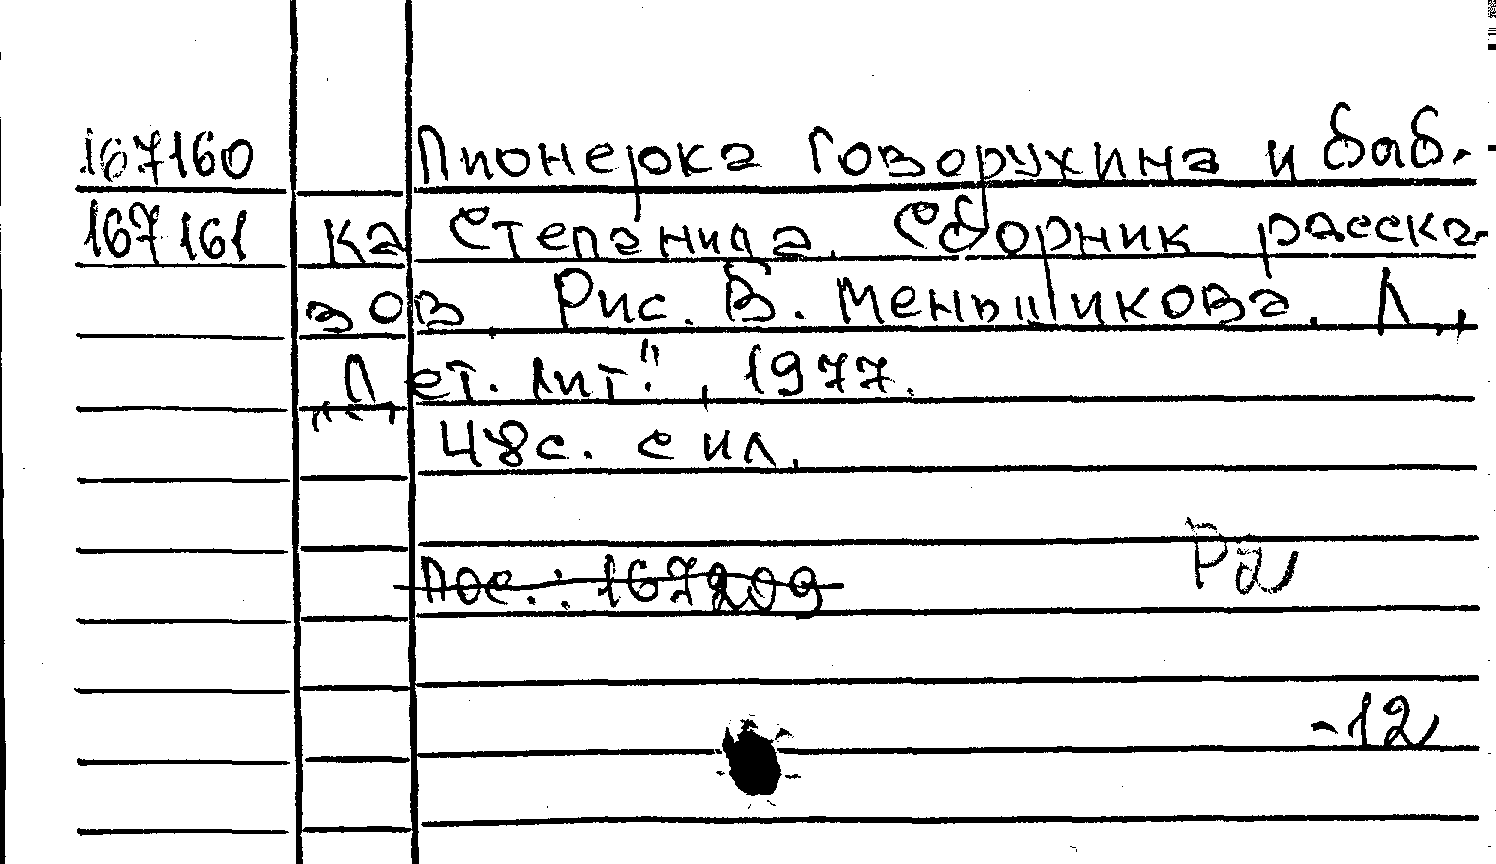 167160 Пионерка Говорухина и баб-
167161 ка Степанида. Сборник расска-
зов. Рис. В. Меньшикова. Л.,
„Дет. лит.", 1977.
48с. с ил.
Р2
Пос.: 167209
-12